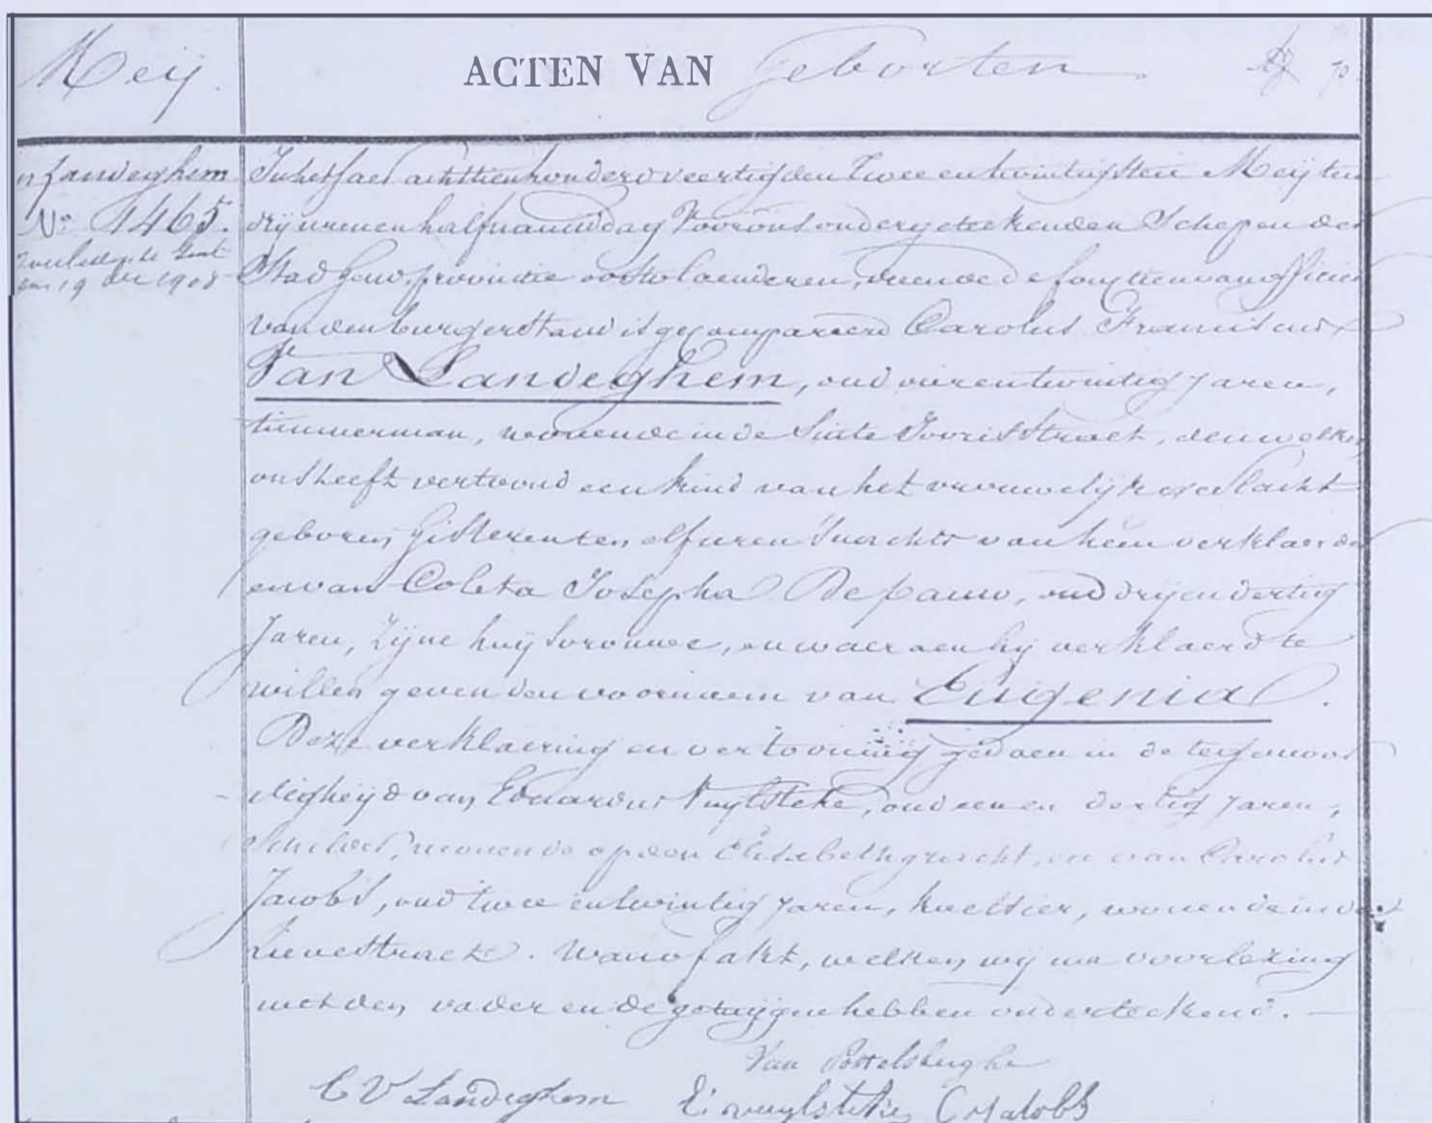 Meij.
ACTEN VAN Geboorten
Landeghem
N° 1465.
overleden te Gent
19 dec 1908
In het jaer achttienhonderd veertig den twee en twintigsten Meij ten
drij uren en half naermiddag Voor ons ondergeteekenden Schepen der
Stad Gend, provintie oostvlaenderen, doende de fonctien van officier
van den burgerstand is gecompareerd Carolus Franciscus
Van Landeghem, oud vier en twintig jaren,
timmerman, wonende in de Sinte Jooris Straet, denwelken
ons heeft vertoond een kind van het vrouwelijke geslacht
geboren gisteren ten elf uren 's nachts van hem verklaerder
en van Coleta Josepha De pauw, oud drij en dertig
Jaren, zijne huijsvrouwe, en waer aen hij verklaerd te
willen geven den voornaem van Eugenia.
Deze verklaering en vertooning gedaen in de tegenwoor
digheijd van Eduardus Vuylsteke, oud een en dertig jaren,
wonende op den Elisabethgracht, en van Carolus
Jacobs, oud twee en twintig jaren, wonende in de
Lievestraet. Waervan akt, welken wij na voorlezing
met den vader en de getuijgen hebben onderteekend.
Van Pottelsberghe
C V Landeghem E. vuylsteke C Jacobs